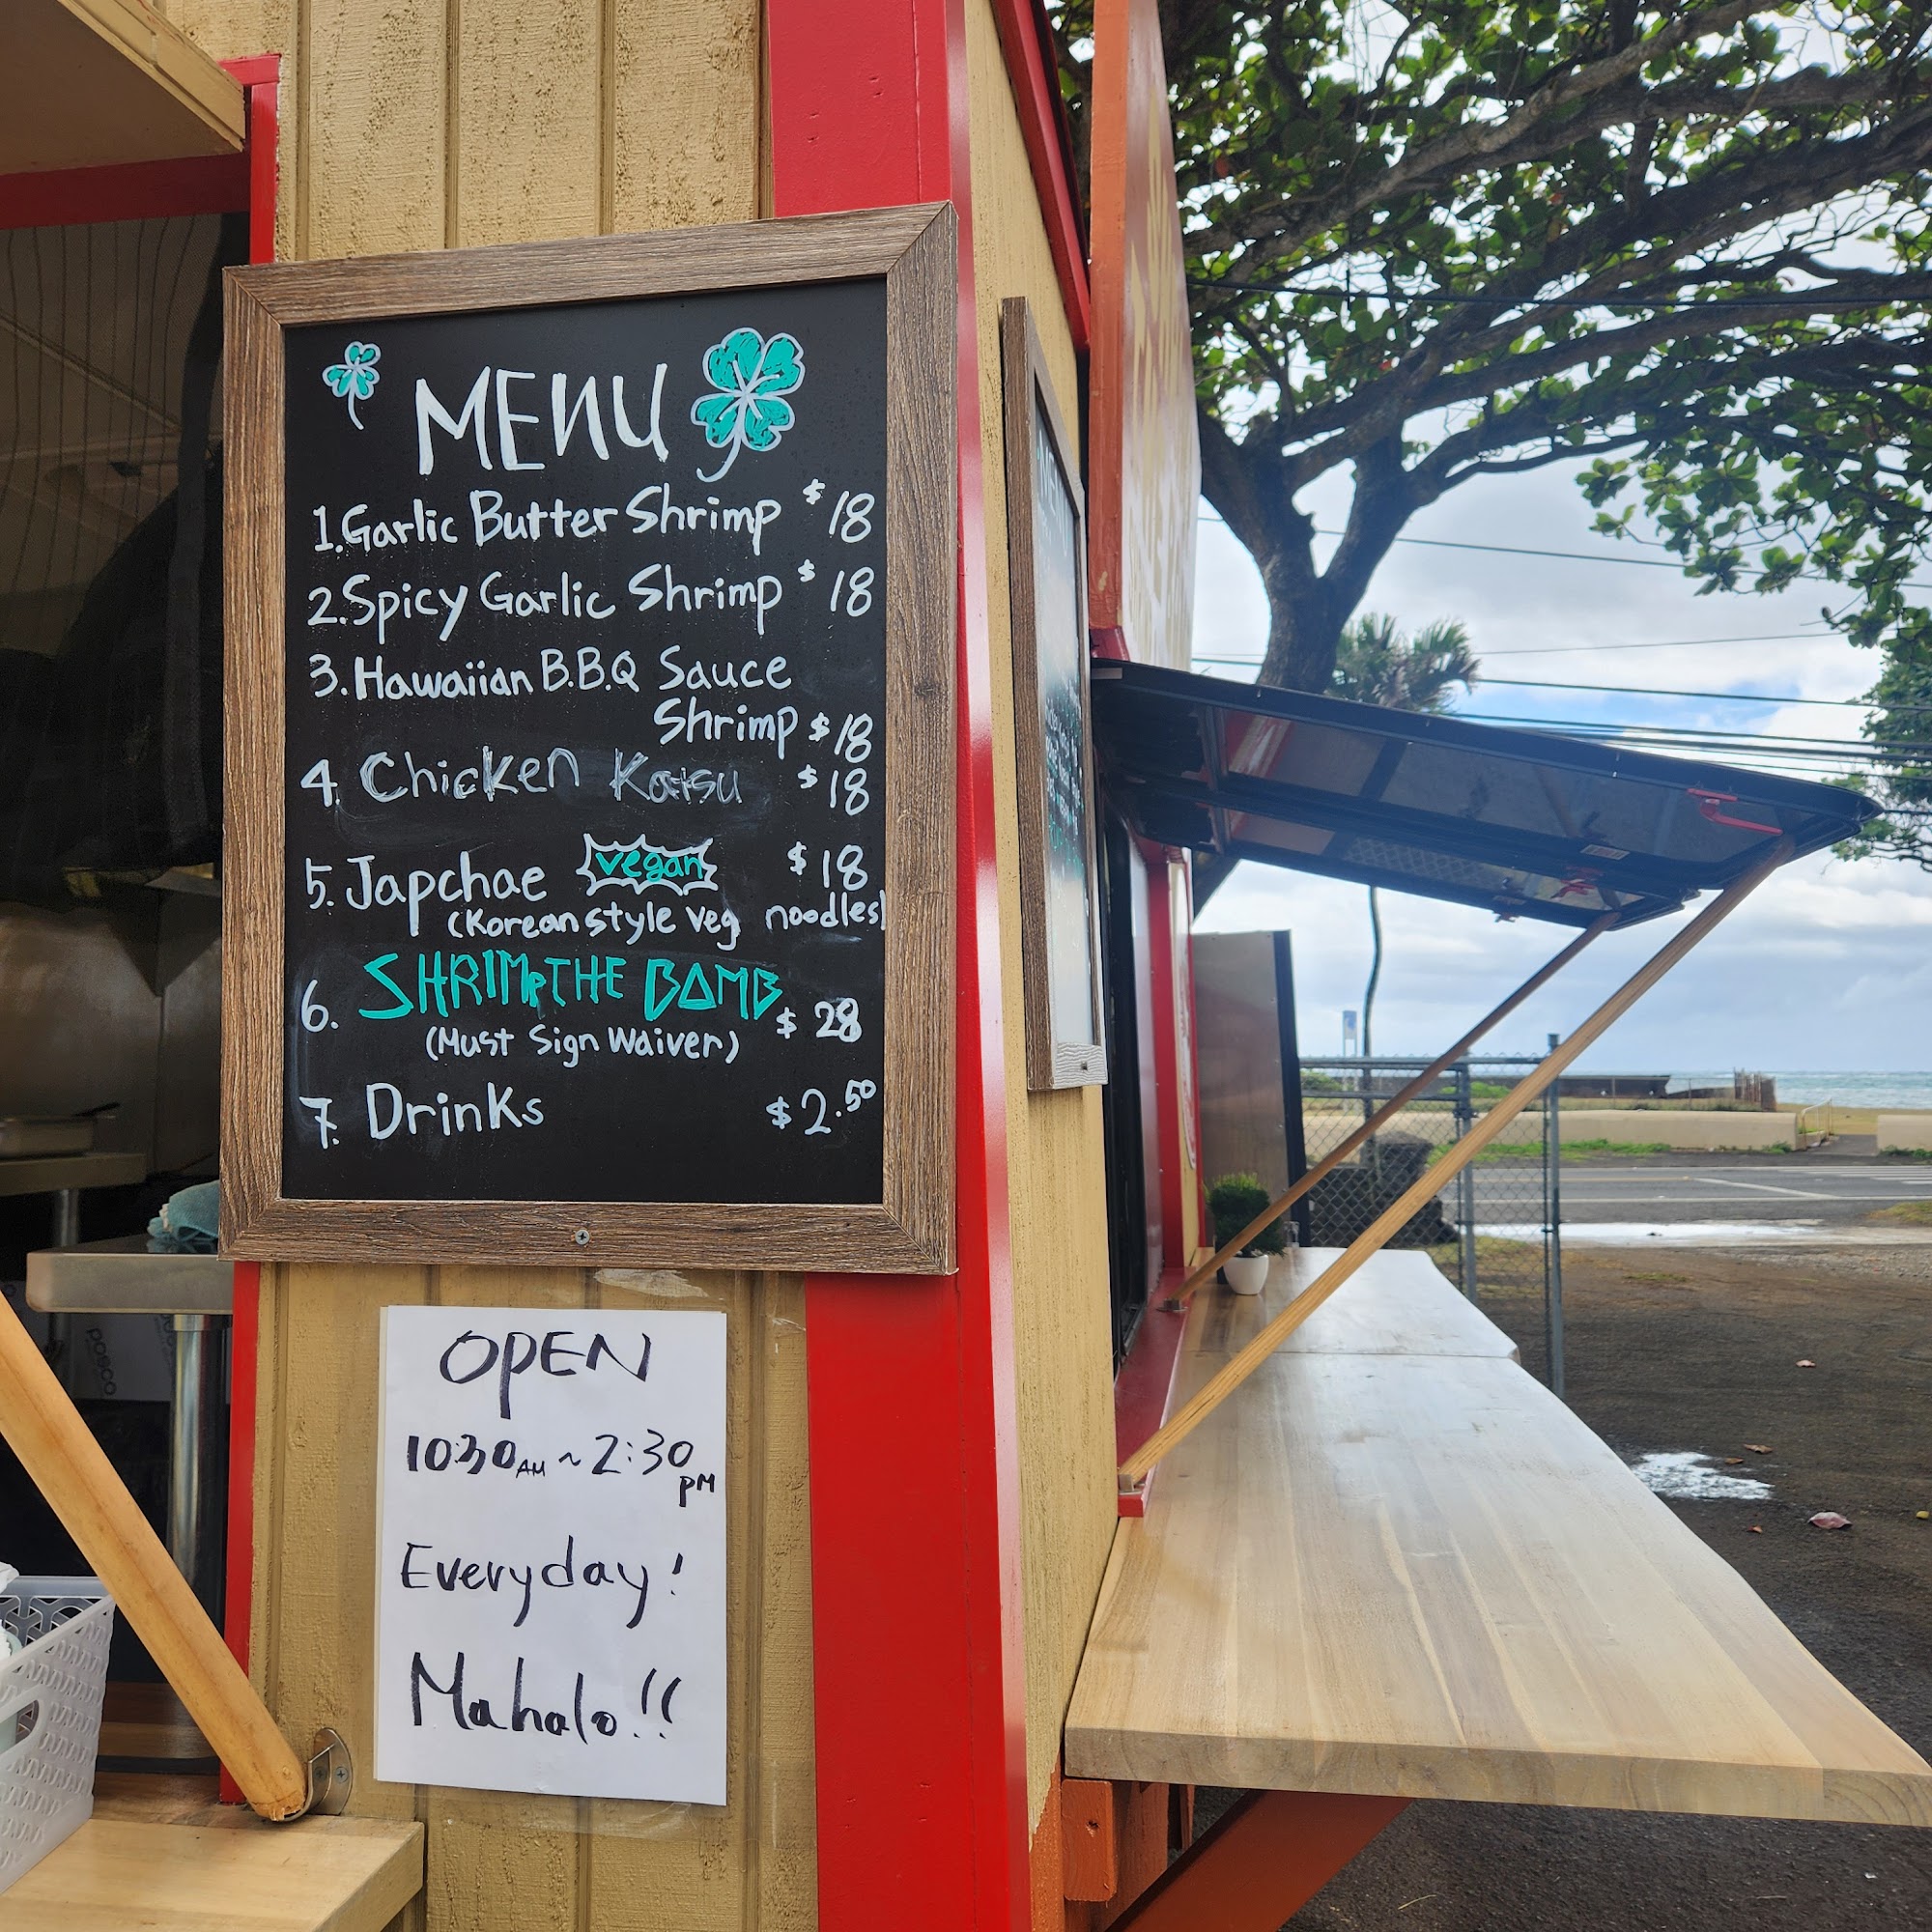 MENU
1. Garlic Butter Shrimp $18
2. Spicy Garlic Shrimp $18
3. Hawaiian B.B.Q Sauce
Shrimp $18
4. Chicken Katsu $18
5. Japchae vegan $18
(Korean style veg noodles)
6. SHRIMP THE BOMB $28
(Must Sign Waiver)
7. Drinks $2.50
OPEN
10:30AM ~ 2:30PM
Everyday!
Mahalo!!
posco